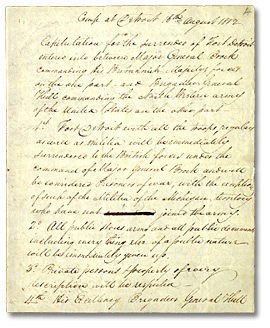 Camp at Detroit 16th August 1812
Capitulation for the surrender of Fort Detroit
entered into between Major General Brock
commanding his Britannick Majestys forces
on the one part, and Brigadier General
Hull commanding the North Western army
of the United States on the other part
1st Fort Detroit with all the troops regulars
as well as Militia will be immediately
surrendered to the British forces under the
command of Major General Brock and will
be considered Prisoners of war, with the exception
of such of the Militia of the Michigan territory
who have not joined the army.
2d All public stores arms and all public documents
including every thing else of a public nature
will be immediately given up.
3d Private persons & property of every
description will be respected
4th His Excellency Brigadier General Hull